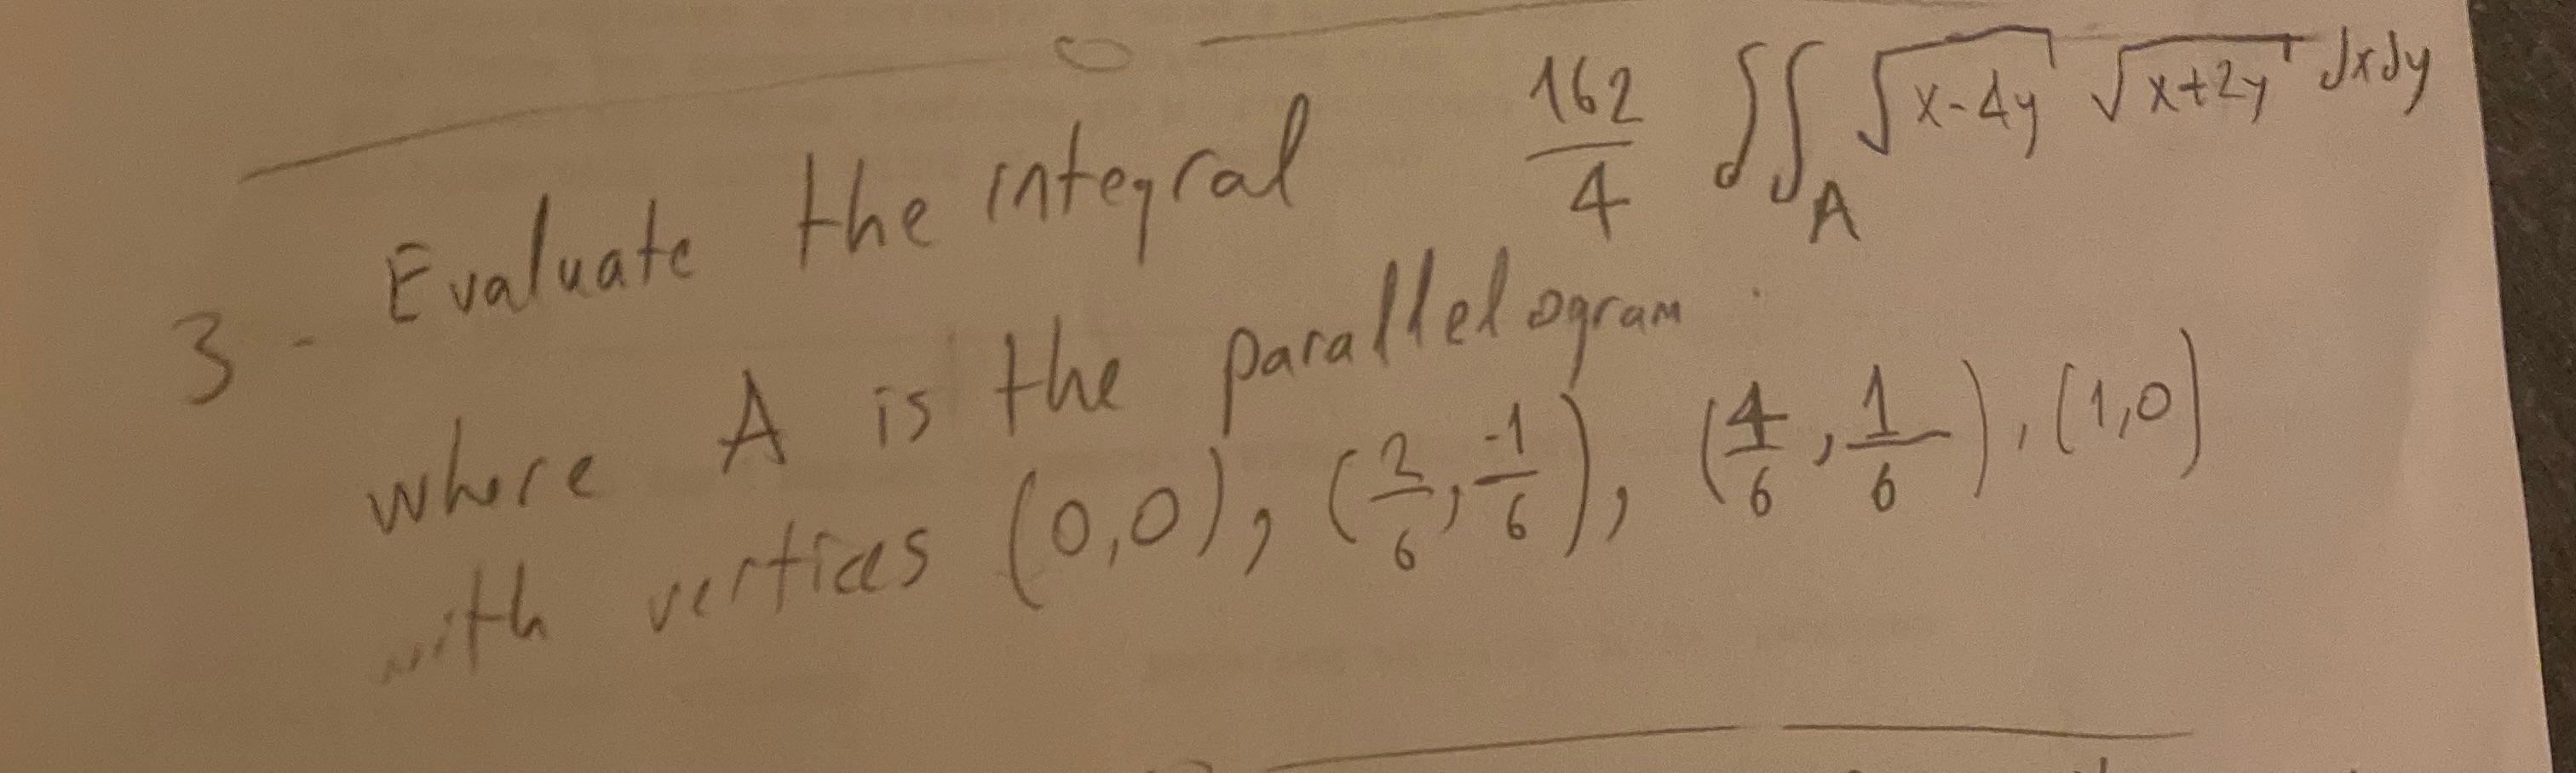 3- Evaluate the integral 162/4 ∬_A √(x-4y) √(x+2y) dxdy
where A is the parallelogram
with vertices (0,0), (2/6, -1/6), (4/6, 1/6), (1,0)